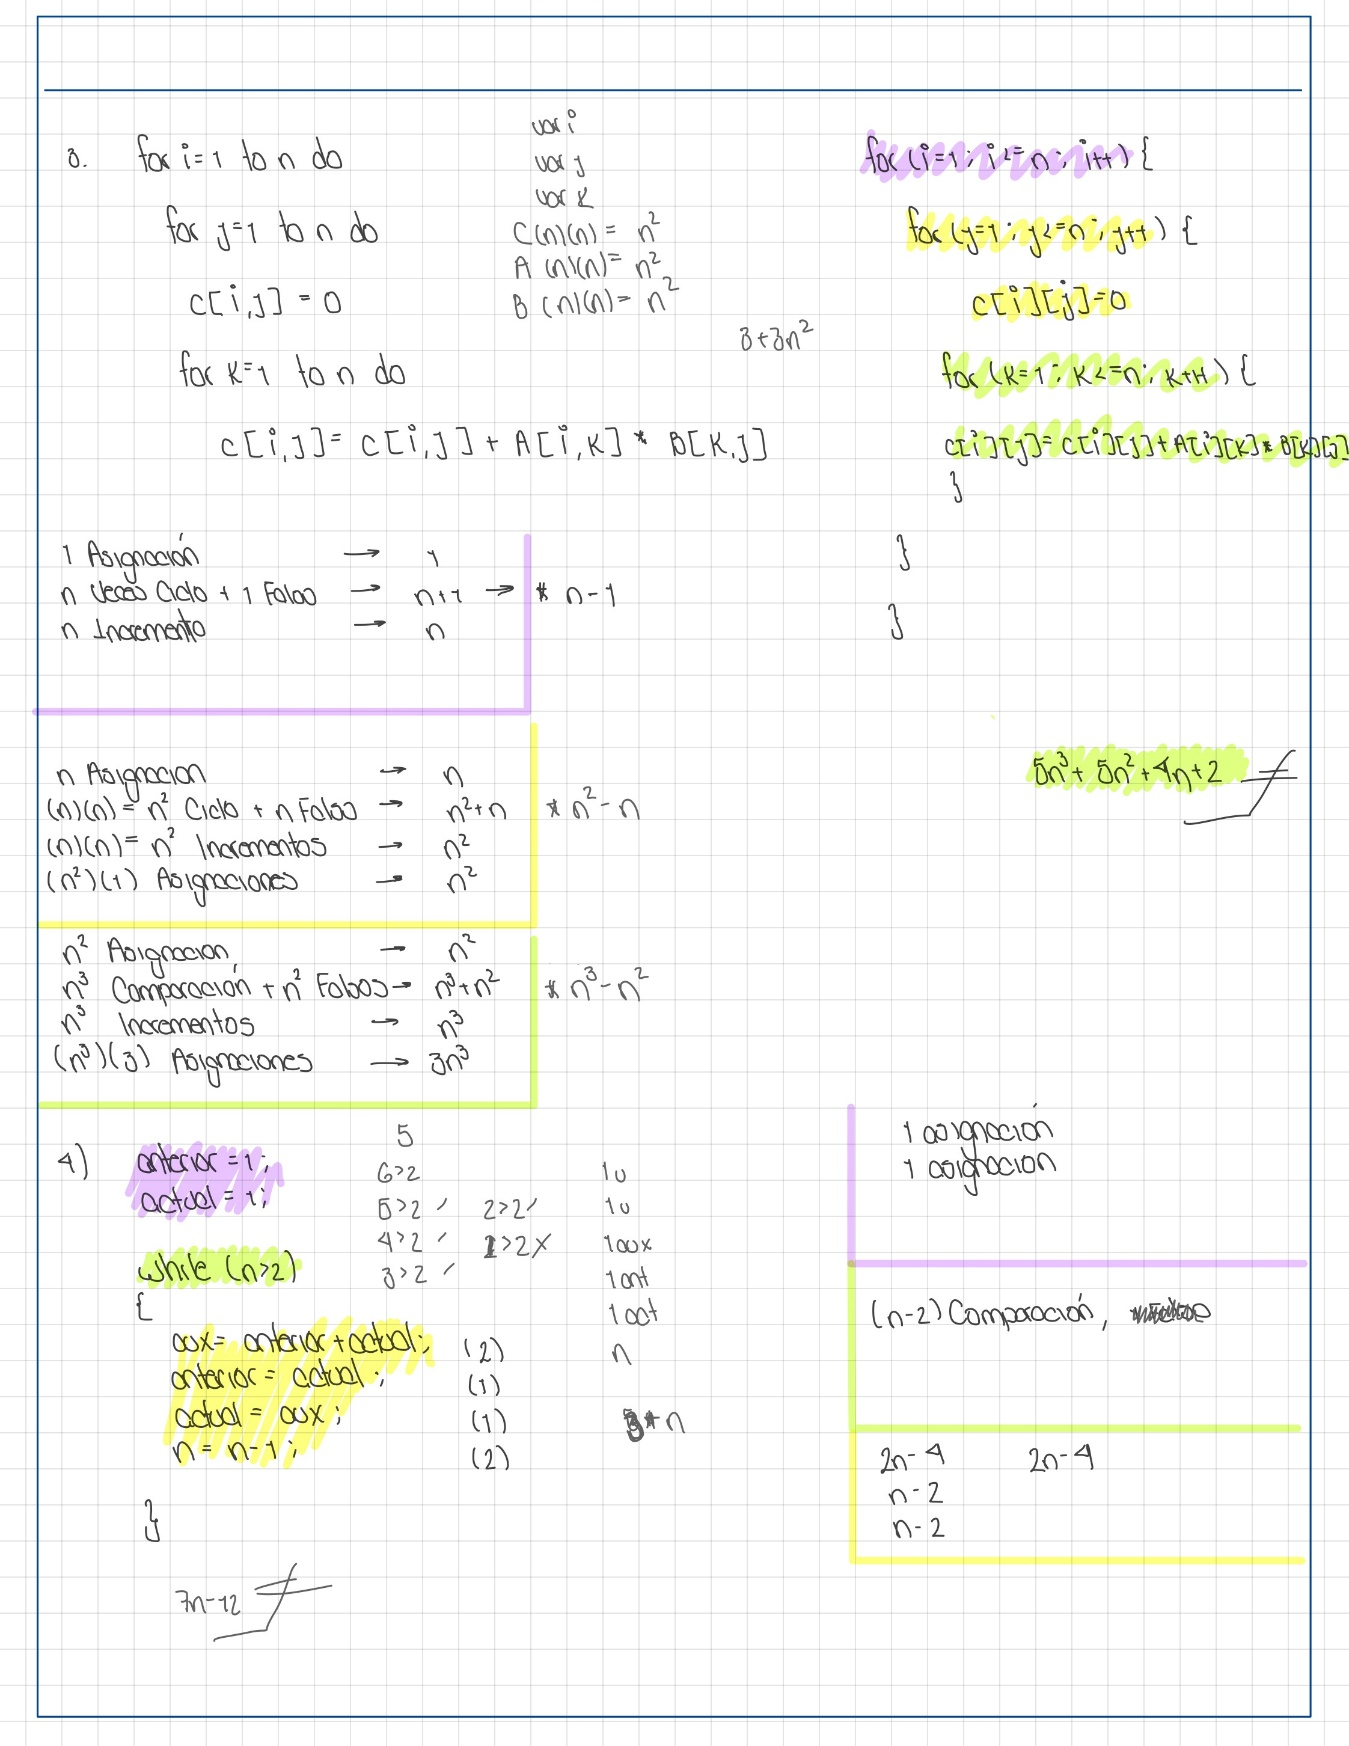 3. for i=1 to n do
for j=1 to n do
c[i,j] = 0
for k=1 to n do
c[i,j] = c[i,j] + A[i,k] * B[k,j]
var i
var j
var k
C(n)(n) = n²
A (n)(n) = n²
B (n)(n) = n²
3+3n²
for (i=1; i<=n; i++) {
for (j=1; j<=n; j++) {
c[i][j]=0
for (k=1; k<=n; k++) {
c[i][j]= c[i][j]+A[i][k]*B[k][j]
}
}
}
1 Asignación → 1
n veces Ciclo + 1 Falso → n+1 → * n-1
n Incremento → n
n Asignacion → n
(n)(n)= n² Ciclo + n Falso → n²+n * n²-n
(n)(n)= n² Incrementos → n²
(n²)(1) Asignaciones → n²
5n³+ 5n²+4n+2
n² Asignacion → n²
n³ Comparación + n² Falsos → n³+n² * n³-n²
n³ Incrementos → n³
(n³)(3) Asignaciones → 3n³
4) anterior = 1;
actual = 1;
while (n>2)
{
aux= anterior+actual; (2)
anterior = actual; (1)
actual = aux; (1)
n = n-1; (2)
}
7n-12
5
6>2
5>2 ✓ 2>2✓
4>2 ✓ 1>2 X
3>2 ✓
1u
1u
1aux
1ant
1act
n
* n
1 asignación
1 asignacion
(n-2) Comparación,
2n-4 2n-4
n-2
n-2